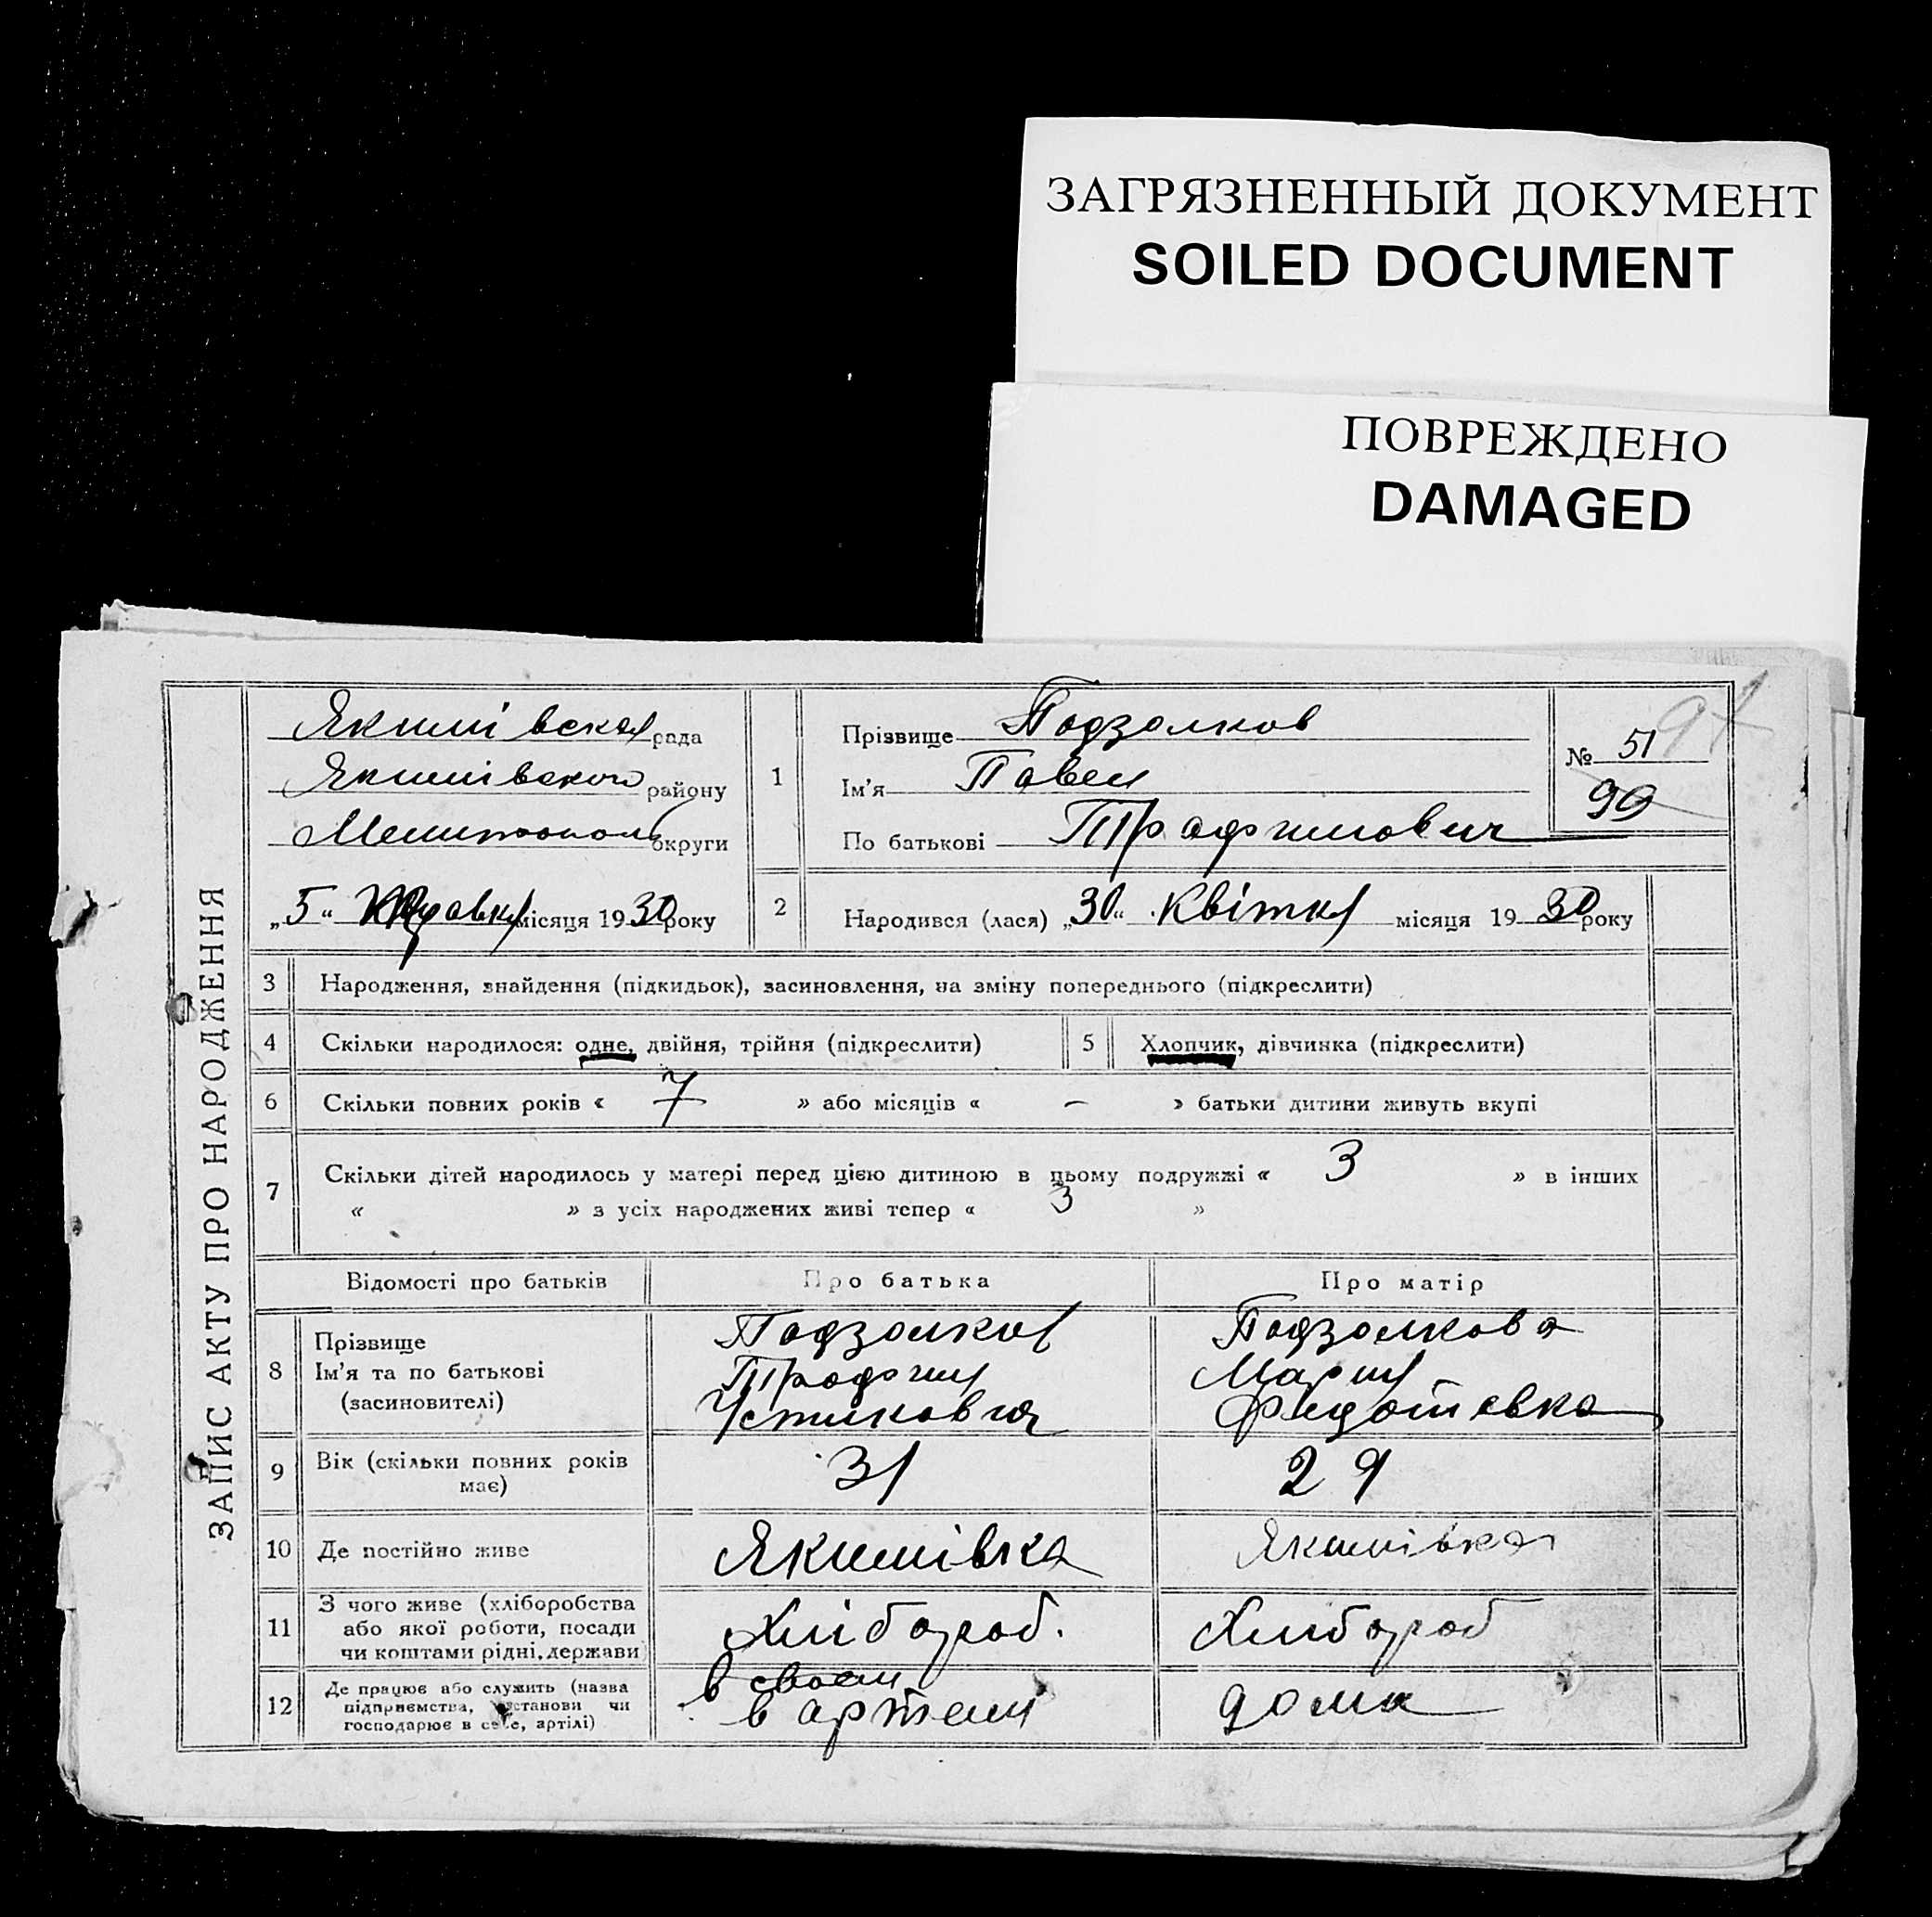 ЗАГРЯЗНЕННЫЙ ДОКУМЕНТ
SOILED DOCUMENT
ПОВРЕЖДЕНО
DAMAGED
ЗАПИС АКТУ ПРО НАРОДЖЕННЯ
Якимівська рада
Якимівського району
Мелитополь округи
„5“ Травня місяця 1930 року
1
Прізвище Подзолков
Ім'я Павел
По батькові Трафимович
№ 51
99
2
Народився (лася) „30“ Квітня місяця 1930 року
3 Народження, знайдення (підкидьок), засиновлення, на зміну попереднього (підкреслити)
4 Скільки народилося: одне, двійня, трійня (підкреслити)
5 Хлопчик, дівчинка (підкреслити)
6 Скільки повних років « 7 » або місяців « – » батьки дитини живуть вкупі
7 Скільки дітей народилось у матері перед цією дитиною в цьому подружжі « 3 » в інших
« » з усіх народжених живі тепер « 3 »
Відомості про батьків Про батька Про матір
8
Прізвище Подзолков Подзолкова
Ім'я та по батькові Трофим Мария
(засиновителі) Федотевна
9 Вік (скільки повних років має) 31 29
10 Де постійно живе Якимівка Якимівка
11 З чого живе (хліборобства
або якої роботи, посади
чи коштами рідні, держави
Хлібороб. Хлібороб
12 Де працює або служить (назва
підприємства, установи чи
господарює в селе, артілі)
в своем
в артели дома